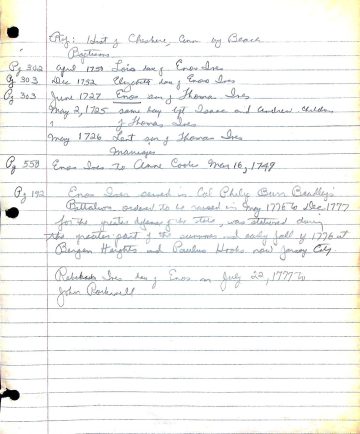 Hist of Cheshire, Conn by Beach
Baptisms
Pg 302 April 1750 Lois dau of Enos Ives
Pg 303 Dec 1752 Elizabeth dau of Enos Ives
Pg 303 June 1727 Enos son of Thomas Ives
May 2, 1725 same bap Isaac and Andrew children
of Thomas Ives
May 1726 son of Thomas Ives
Marriages
Pg 559 Enos Ives to Anne Cook Mar 16, 1749
Pg 192 Enos Ives served in Col Philip Burr Bradley's
Battalion ordered to be raised in May 1776 to Dec 1777
for the greater defense of the state, was stationed during
the greater part of the summer and early fall of 1776 at
Bergen Heights and Paulus Hook now Jersey City
Ives dau of Enos m July 22, 1777 to
John